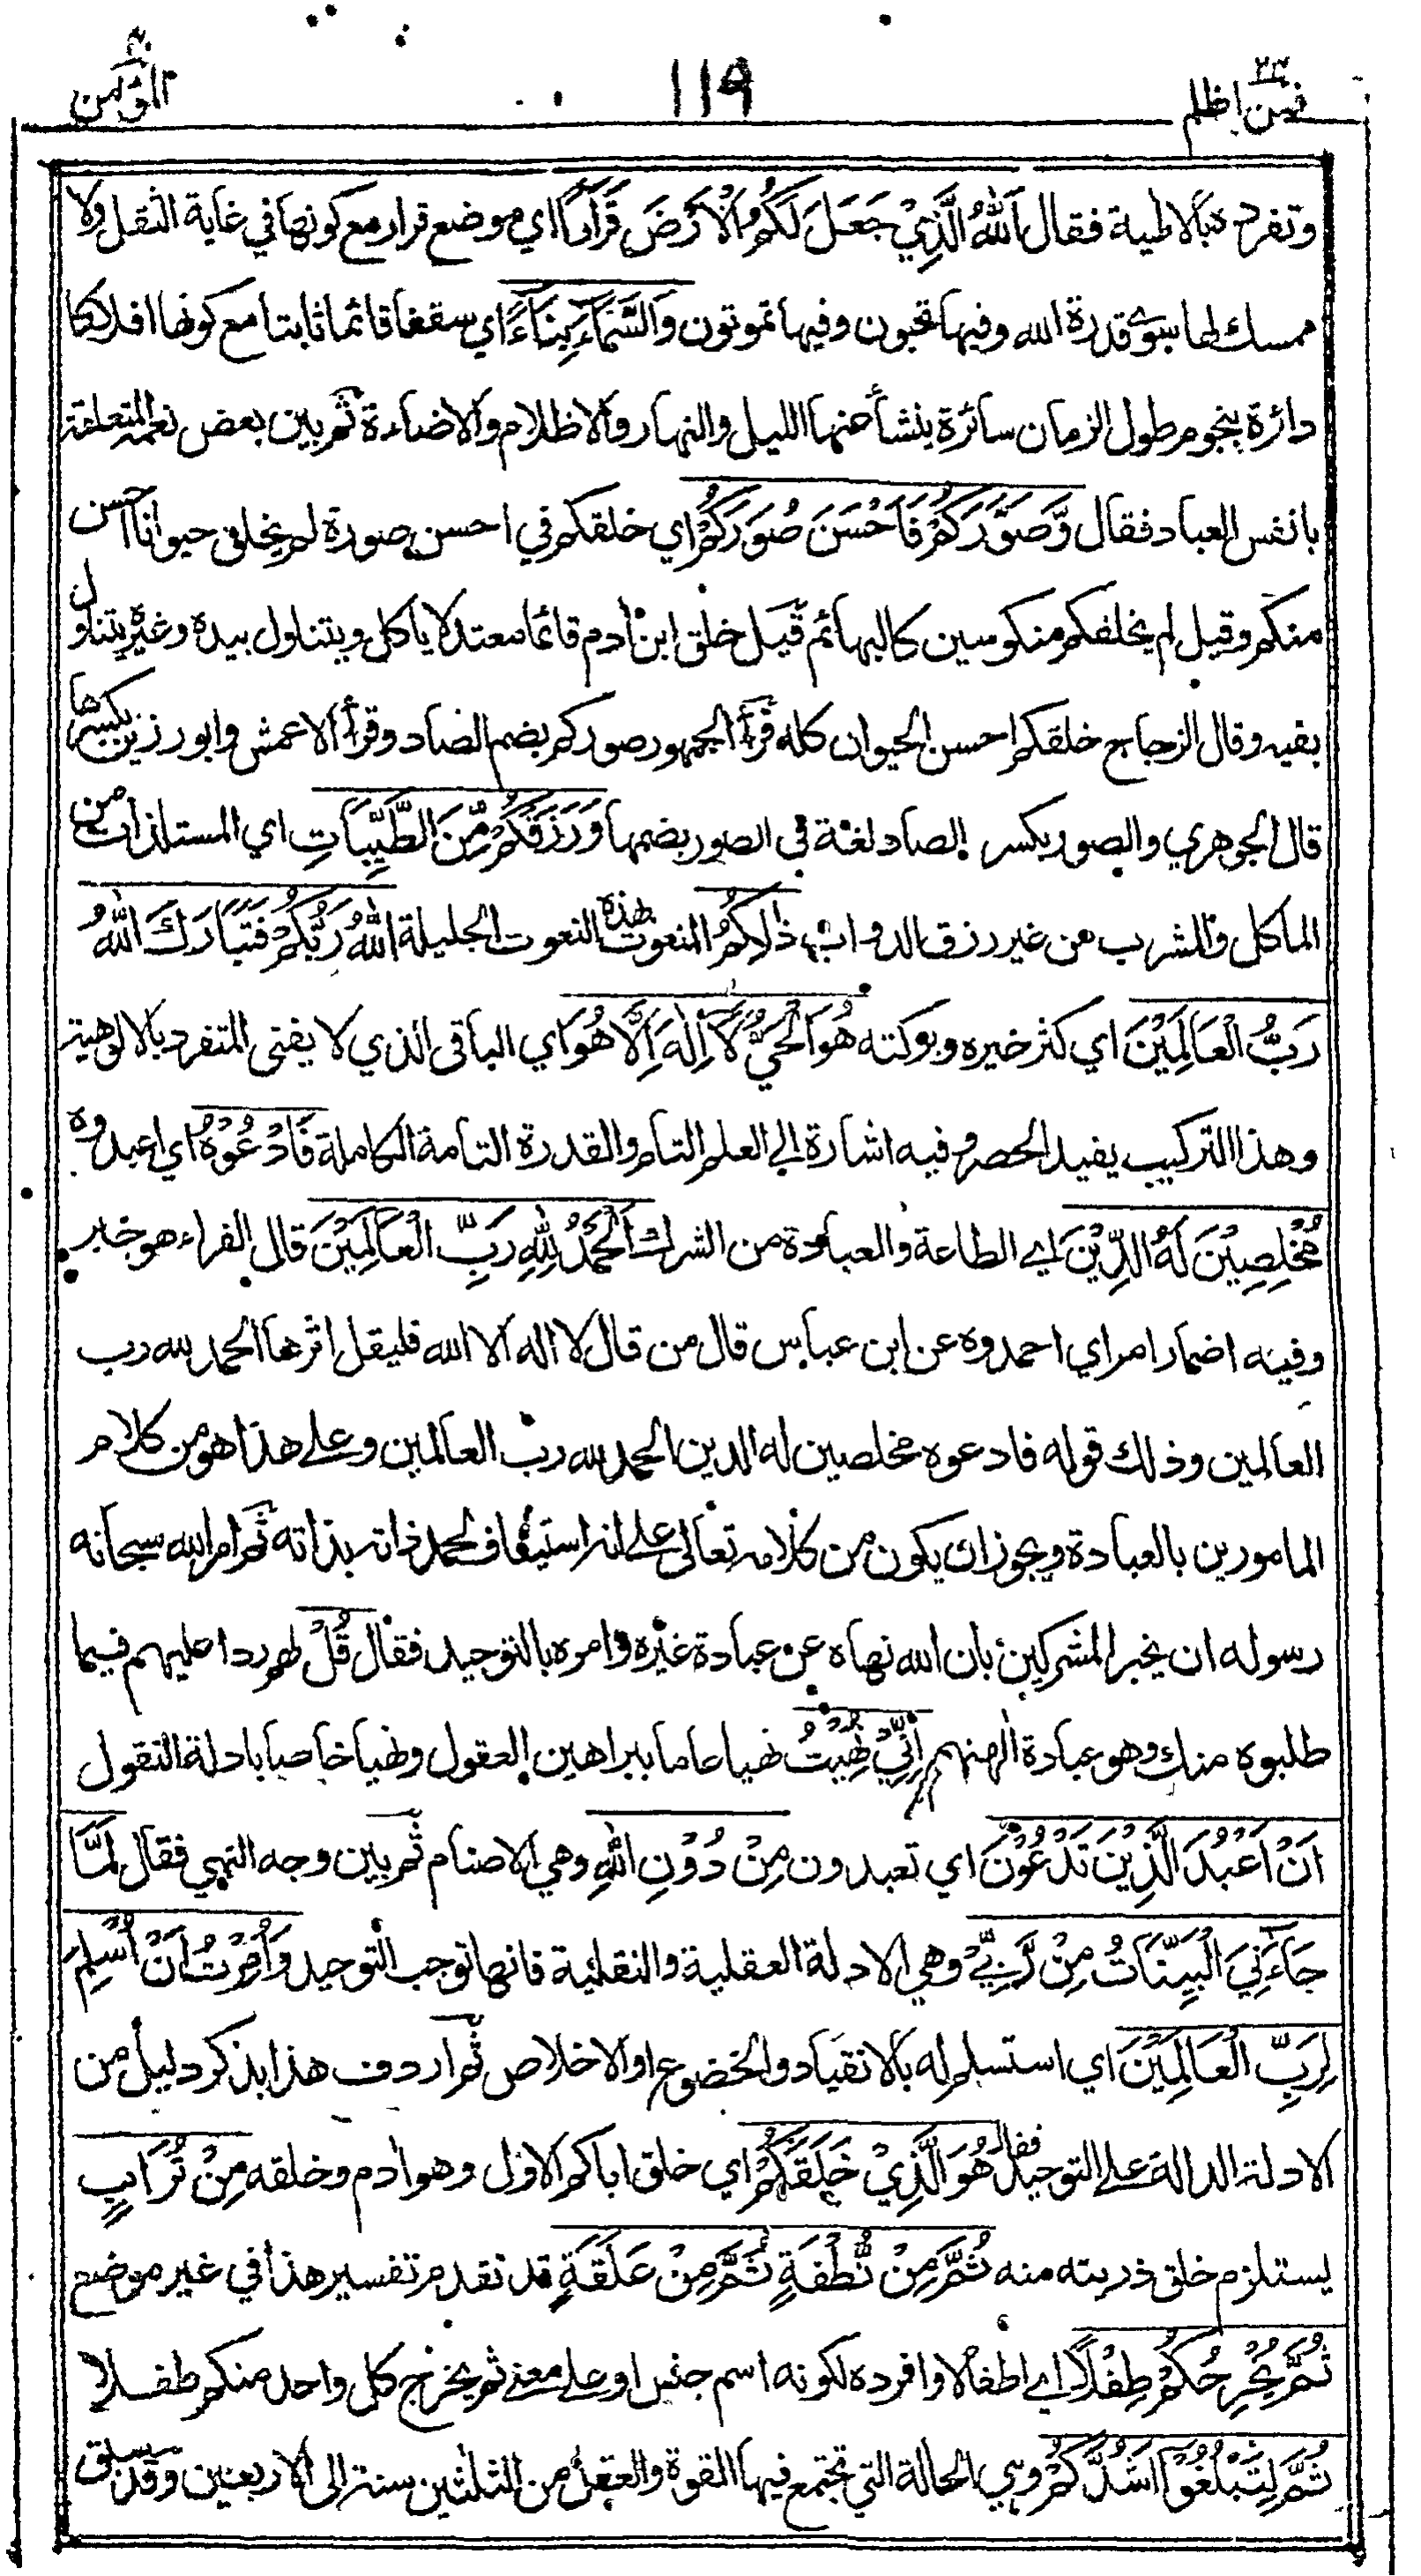 فمن اظلم ٢٤
١١٩
المؤمن ٤٠
وتفرده بالالهية فقال اَللّٰهُ الَّذِيْ جَعَلَ لَكُمُ الْاَرْضَ قَرَارًا اي موضع قرار مع كونها في غاية الثقل ولا
ممسك لها سوى قدرة الله وفيها تحيون وفيها تموتون وَالسَّمَاءَ بِنَاءً اي سقفا قائما ثابتا مع كونها افلاكا
دائرة بنجوم طول الزمان سائرة ينشأ عنها الليل والنهار والاظلام والاضاءة ثم بين بعض نعمه المتعلقة
بانفس العباد فقال وَّصَوَّرَكُمْ فَاَحْسَنَ صُوَرَكُمْ اي خلقكم في احسن صورة لم يخلق حيوانا احسن
منكم وقيل لم يخلقكم منكوسين كالبهائم قيل خلق ابن آدم قائما معتدلا ياكل ويتناول بيده وغيره يتناول
بفيه وقال الزجاج خلقكم احسن الحيوان كله قرأ الجمهور صوركم بضم الصاد وقرأ الاعمش وابو رزين بكسرها
قال الجوهري والصور بكسر الصاد لغة في الصور بضمها وَرَزَقَكُمْ مِّنَ الطَّيِّبَاتِ اي المستلذات من
الماكل والمشرب من غير رزق الدواب ذٰلِكُمُ المنعوت بهذه النعوت الجليلة اللّٰهُ رَبُّكُمْ فَتَبَارَكَ اللّٰهُ
رَبُّ الْعَالَمِيْنَ اي كثر خيره وبركته هُوَ الْحَيُّ لَا اِلٰهَ اِلَّا هُوَ اي الباقي الذي لا يفنى المتفرد بالالوهية
وهذا التركيب يفيد الحصر وفيه اشارة الى العلم التام والقدرة التامة الكاملة فَادْعُوْهُ اي اعبدوه
مُخْلِصِيْنَ لَهُ الدِّيْنَ اي الطاعة والعبادة من الشرك اَلْحَمْدُ لِلّٰهِ رَبِّ الْعَالَمِيْنَ قال الفراء هو خبر
وفيه اضمار امر اي احمدوه عن ابن عباس قال من قال لا اله الا الله فليقل اثرها الحمد لله رب
العالمين وذلك قوله فادعوه مخلصين له الدين الحمد لله رب العالمين وعلى هذا هو من كلام
المامورين بالعبادة ويجوز ان يكون من كلامه تعالى على انه استيناف لحمد ذاته بذاته ثم امر الله سبحانه
رسوله ان يخبر المشركين بان الله نهاه عن عبادة غيره وامره بالتوحيد فقال قُلْ لهم ردا عليهم فيما
طلبوه منك وهو عبادة الهتهم اِنِّيْ نُهِيْتُ نهيا عاما ببراهين العقول ونهيا خاصا بادلة النقول
اَنْ اَعْبُدَ الَّذِيْنَ تَدْعُوْنَ اي تعبدون مِنْ دُوْنِ اللّٰهِ وهي الاصنام ثم بين وجه النهي فقال لَمَّا
جَاءَنِيَ الْبَيِّنَاتُ مِنْ رَّبِّيْ وهي الادلة العقلية والنقلية فانها توجب التوحيد وَاُمِرْتُ اَنْ اُسْلِمَ
لِرَبِّ الْعَالَمِيْنَ اي استسلم له بالانقياد والخضوع او الاخلاص ثم اردف هذا بذكر دليل من
الادلة الدالة على التوحيد فقال هُوَ الَّذِيْ خَلَقَكُمْ اي خلق اباكم الاول وهو ادم وخلقه مِنْ تُرَابٍ
يستلزم خلق ذريته منه ثُمَّ مِنْ نُّطْفَةٍ ثُمَّ مِنْ عَلَقَةٍ قد تقدم تفسير هذا في غير موضع
ثُمَّ يُخْرِجُكُمْ طِفْلًا اي اطفالا وافرده لكونه اسم جنس او على معنى ثم يخرج كل واحد منكم طفلا
ثُمَّ لِتَبْلُغُوْا اَشُدَّكُمْ وهي الحالة التي تجتمع فيها القوة والعقل من الثلثين سنة الى الاربعين وقد سبق